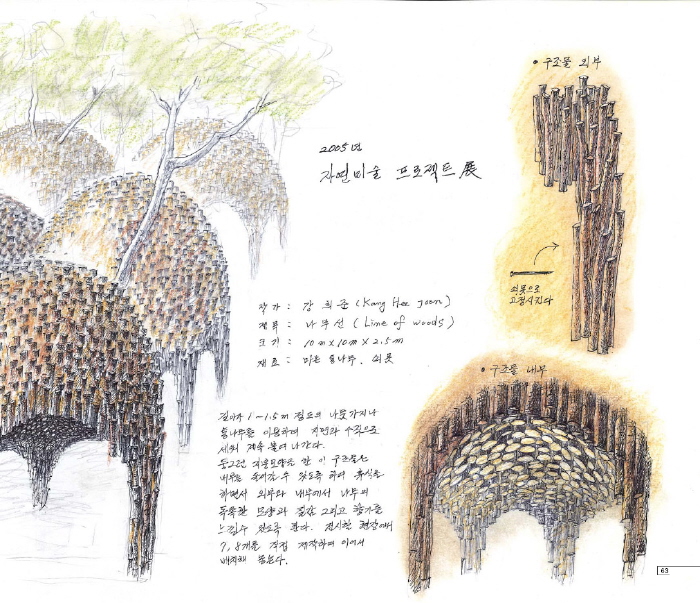 2005년
자연미술 프로젝트 展
• 구조물 외부
쇠못으로
고정시킨다
작가 : 강희준 (Kang Hee Joon)
제목 : 나무선 (Line of woods)
크기 : 10m x 10m x 2.5m
재료 : 마른 통나무, 쇠못
• 구조물 내부
길이가 1~1.5m 정도의 나뭇가지나
통나무를 이용하여 지면과 수직으로
세워 계속 붙여 나간다.
둥그런 지붕모양을 한 이 구조물은
내부로 들어갈 수 있도록 하여 휴식을
하면서 외부와 내부에서 나무의
독특한 모양과 질감 그리고 향기를
느낄수 있도록 한다. 전시할 현장에서
7, 8개를 직접 제작하여 이어서
배치해 놓는다.
63